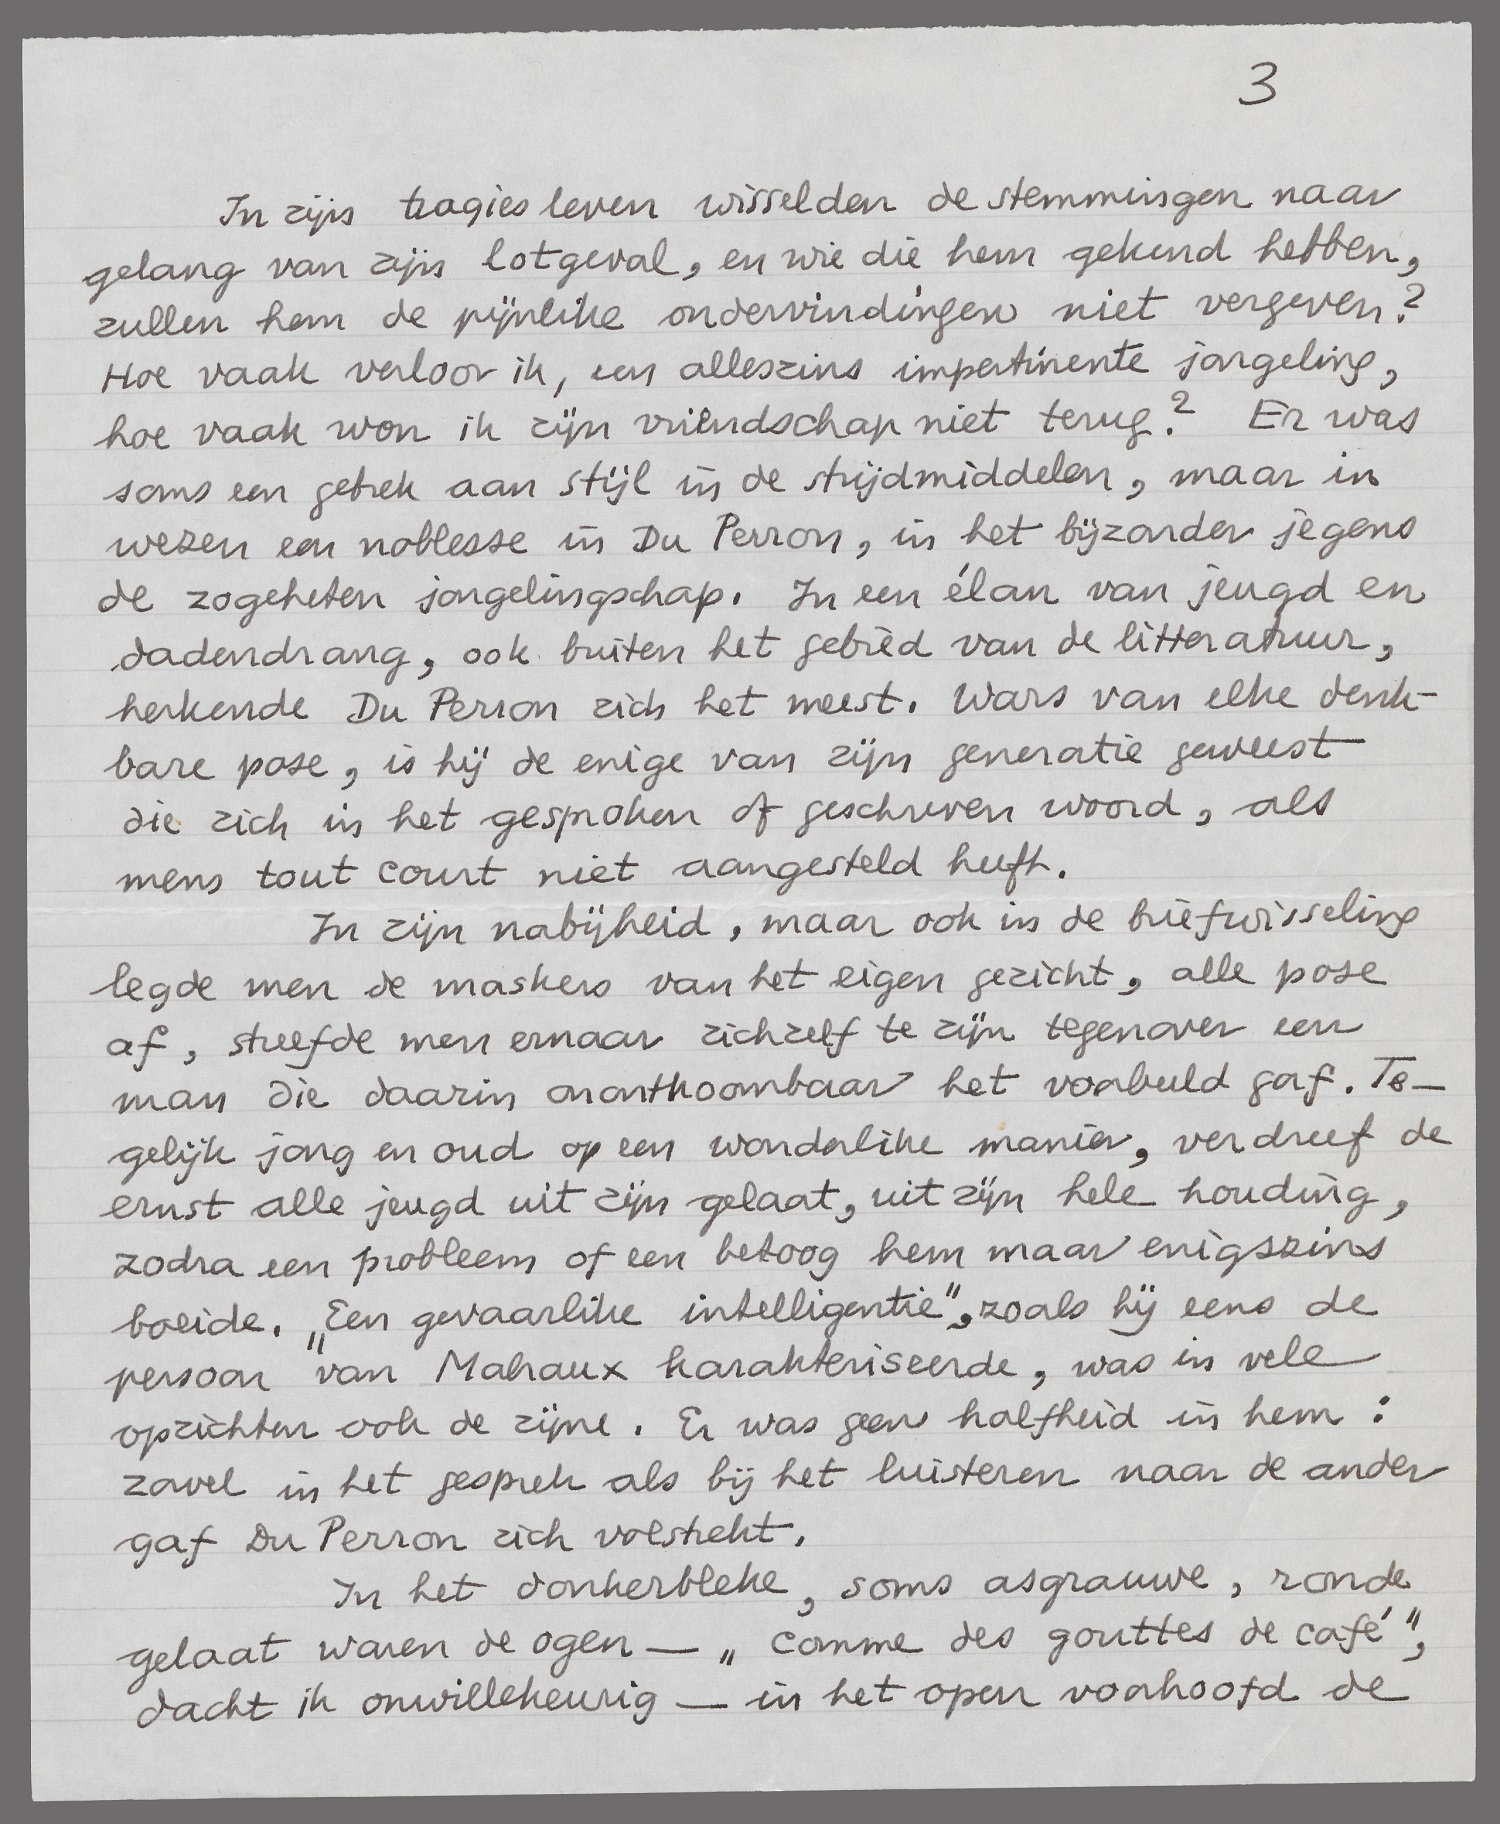 3
In zijn tragies leven wisselden de stemmingen naar
gelang van zijn lotgeval, en wie die hem gekend hebben,
zullen hem de pijnlike ondervindingen niet vergeven?
Hoe vaak verloor ik, een alleszins impertinente jongeling,
hoe vaak won ik zijn vriendschap niet terug? Er was
soms een gebrek aan stijl in de strijdmiddelen, maar in
wezen een noblesse in Du Perron, in het bijzonder jegens
de zogeheten jongelingschap. In een élan van jeugd en
dadendrang, ook buiten het gebied van de litteratuur,
herkende Du Perron zich het meest. Wars van elke denk-
bare pose, is hij de enige van zijn generatie geweest
die zich in het gesproken of geschreven woord, als
mens tout court niet aangesteld heeft.
In zijn nabijheid, maar ook in de briefwisseling
legde men de maskers van het eigen gezicht, alle pose
af, streefde men ernaar zichzelf te zijn tegenover een
man die daarin onontkoombaar het voorbeeld gaf. Te-
gelijk jong en oud op een wonderlike manier, verdreef de
ernst alle jeugd uit zijn gelaat, uit zijn hele houding,
zodra een probleem of een betoog hem maar enigszins
boeide. „Een gevaarlike intelligentie", zoals hij eens de
persoon van Malraux karakteriseerde, was in vele
opzichten ook de zijne. Er was geen halfheid in hem:
zowel in het gesprek als bij het luisteren naar de ander
gaf Du Perron zich volstrekt.
In het donkerbleke, soms asgrauwe, ronde
gelaat waren de ogen — „comme des gouttes de café",
dacht ik onwillekeurig — in het open voorhoofd de